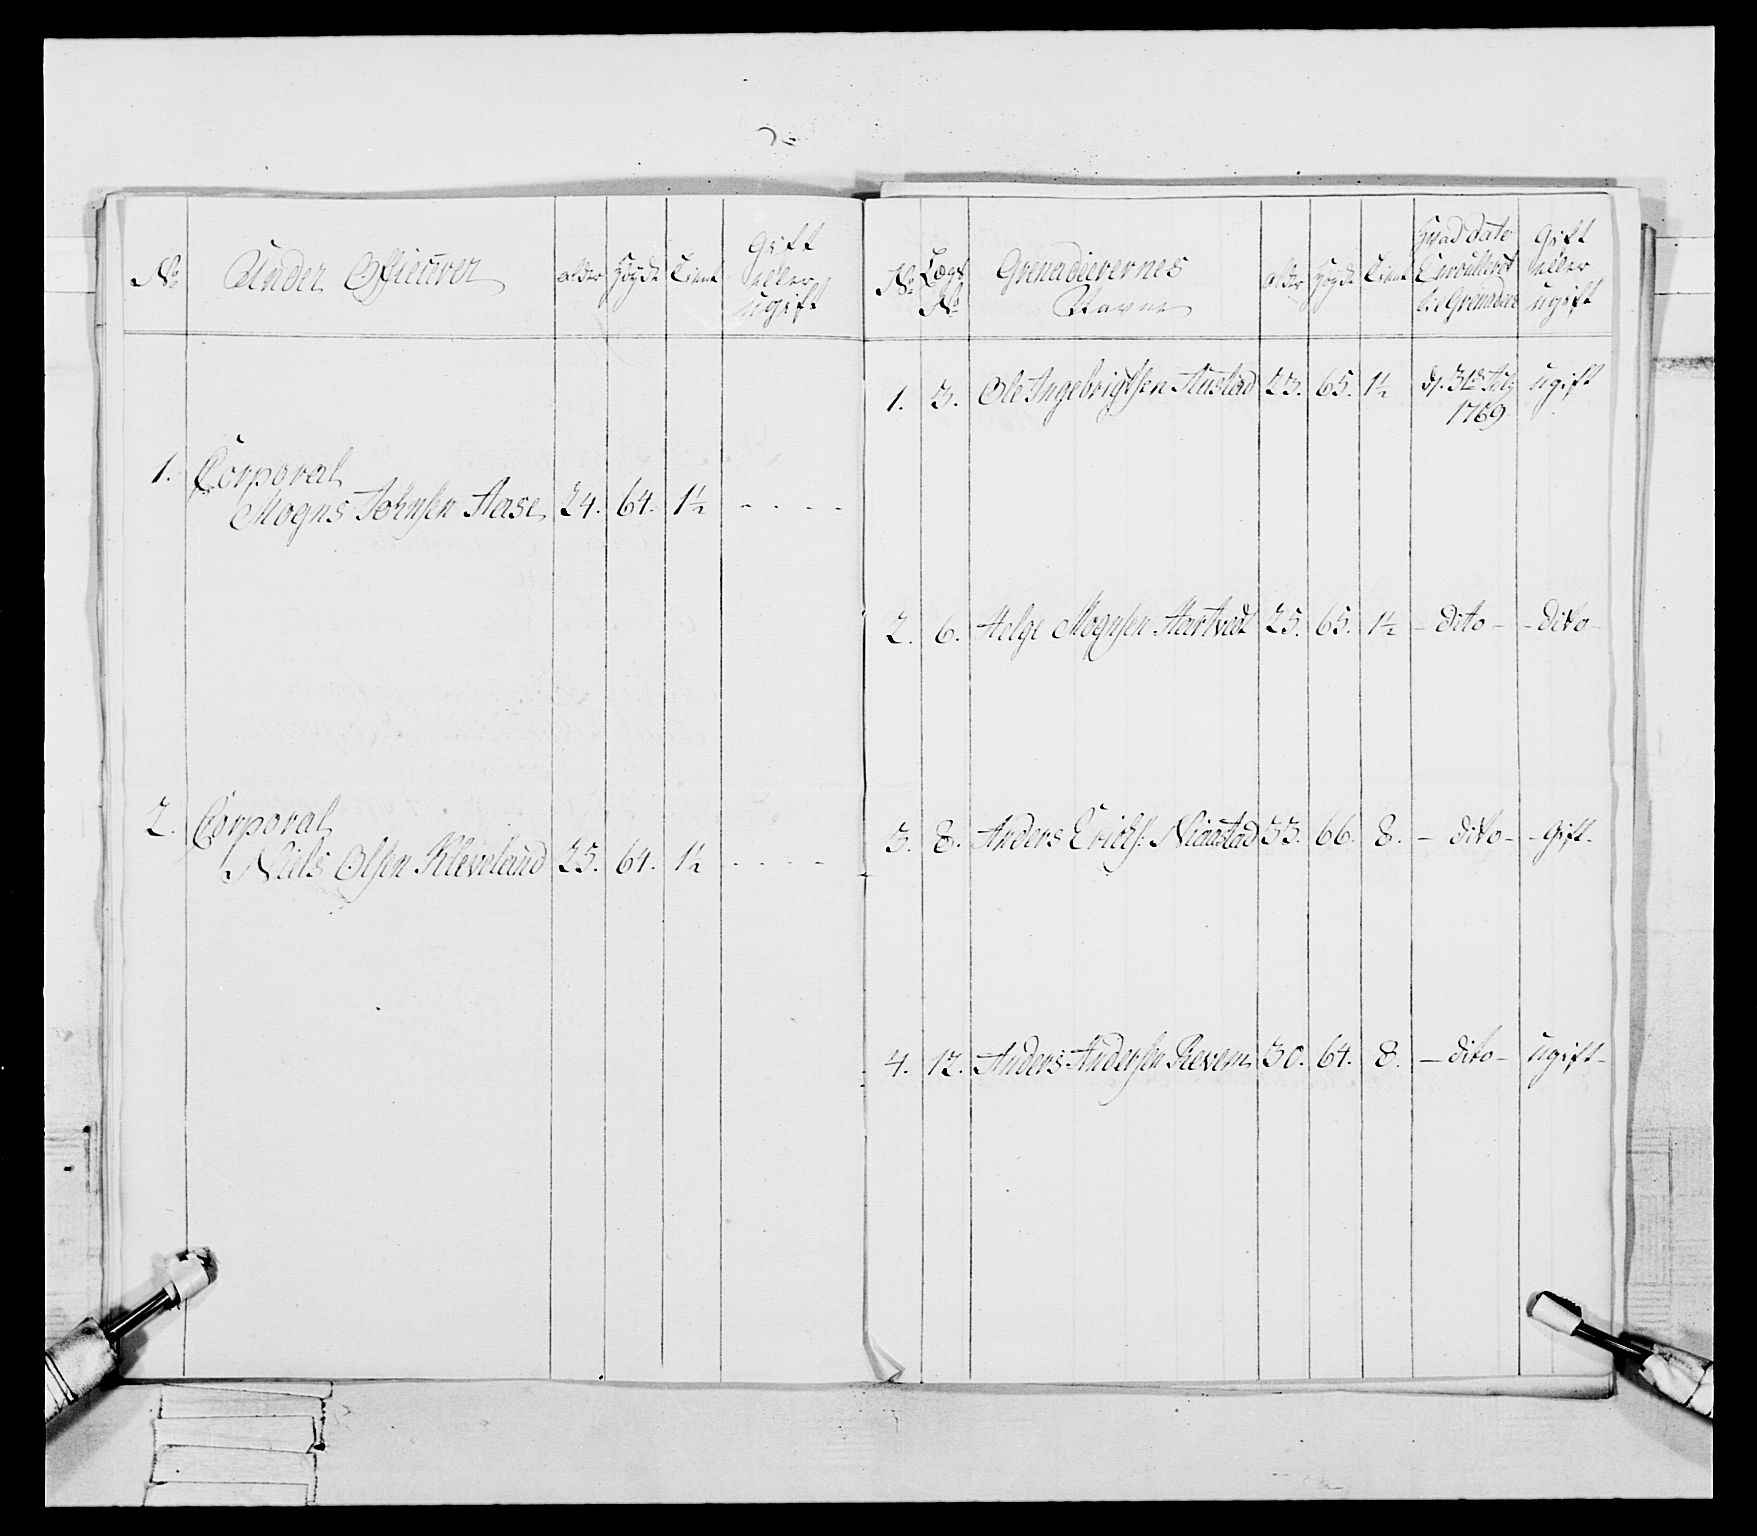 No Under Officurer alder Høyde Tient Gift eller ugift
1. Corporal
Mogns Johnsen Aase 24. 64. 1½ - - - -
2. Corporal
Niels Olsen Kleveland 25. 64. 1½ - - - -
No Lægs No Grenadeerernes Navne alder Høyde Tient Hvad date Enroulleret til Grenadeer Gift eller ugift
1. 3. Ole Ingebrigtsen Austad 23. 65. 1½ d. 31te 1769 ugift
2. 6. Helge Mognsen Hartvedt 25. 65. 1½ - dito - - dito -
3. 8. Anders Erichs: 33. 66. 8. - dito - - Gift -
4. 12. Anders Andersen Revem 30. 64. 8. - dito - ugift -